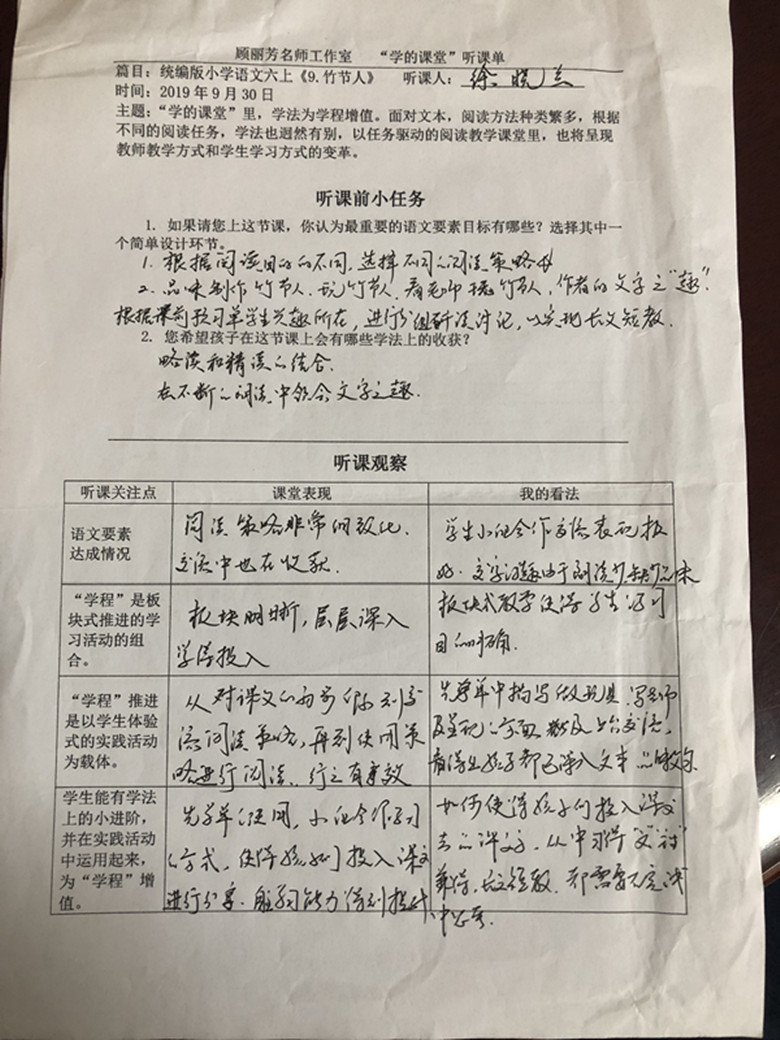 顾丽芳名师工作室 “学的课堂”听课单
篇目：统编版小学语文六上《9.竹节人》 听课人：徐晓兰
时间：2019年9月30日
主题：“学的课堂”里，学法为学程增值。面对文本，阅读方法种类繁多，根据
不同的阅读任务，学法也迥然有别，以任务驱动的阅读教学课堂里，也将呈现
教师教学方式和学生学习方式的变革。
听课前小任务
1. 如果请您上这节课，你认为最重要的语文要素目标有哪些？选择其中一
个简单设计环节。
1. 根据阅读目的的不同，选择不同的阅读策略
2. 品味制作竹节人、玩竹节人、看老师玩竹节人，作者的文字之“趣”。
根据课前预习单学生兴趣所在，进行分组研读讨论，以实现长文短教．
2. 您希望孩子在这节课上会有哪些学法上的收获？
略读和精读的结合．
在不断的阅读中领会文字之趣．
听课观察
听课关注点 课堂表现 我的看法
语文要素
达成情况
阅读策略非常细致化．
交流中也在收获．
学生小组合作交流表现极
好．文字之趣由于阅读
“学程”是板
块式推进的学
习活动的组
合。
板块明晰，层层深入
学得投入
板块式教学使得学生学习
目的明确．
“学程”推进
是以学生体验
式的实践活动
为载体。
从对课文的初步了解到交
流阅读策略，再到使用策
略进行阅读．行之有效
先学单中描写做玩具、写老师
及呈现的方面，以及上台交流，
看得出孩子都已深入文本
学生能有学法
上的小进阶，
并在实践活动
中运用起来，
为“学程”增
值。
先学单的使用，小组合作学习
的方式，使得孩子们投入课文
进行分享．自学能力得到提升
如何使得孩子们投入课文
去品评文字，从中习得
兼得，长文短教，都需要在实践
中思考．